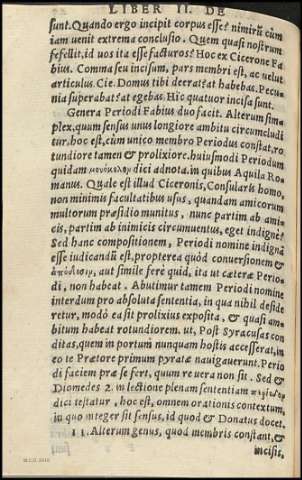 LIBER II. DE
sunt. Quando ergo incipit corpus esse? nimirũ cùm
iam uenit extrema conclusio. Quem quæso nostrum
fefellit, id uos ita esse facturos? Hoc ex Cicerone Fa
bius. Comma seu incisum, pars membri est, ac uelut
articulus. Cic. Domus tibi deerat? at habebas. Pecu
nia superabat? at egebas. Hic quatuor incisa sunt.
Genera Periodi Fabius duo facit. Alterum sim
plex, quum sensus unus longiore ambitu circumduci
tur, hoc est, cùm unico membro Periodus constat, ro
tundiore tamen & prolixiore. huiusmodi Periodum
quidam μονόκωλον dici adnotat, in quibus Aquila Ro
manus. Quale est illud Ciceronis, Consularis homo,
non minimis facultatibus usus, quandam amicorum
multorum præsidio munitus, nunc partim ab ami-
cis, partim ab inimicis circumuentus, eget indignè?
Sed hanc compositionem, Periodi nomine indignã
esse iudicandũ est, propterea quòd conuersionem &
ἀπόδοσιν, aut simile ferè quid, ita ut cæteræ Perio-
di, non habeat. Abutimur tamem Periodi nomine
interdum pro absoluta sententia, in qua nihil deside
retur, modò ea sit prolixius exposita, & quasi am-
bitum habeat rotundiorem. ut, Post Syracusas con
ditas, quem in portum nunquam hostis accesserat, in
eo te Prætore primum pyratæ nauigauerunt. Perio
di faciem præ se fert, quum re uera non sit. Sed &
Diomedes 2. in lectione plenam sententiam περίοδον
dici testatur, hoc est, omnem orationis contextum,
in quo integer sit sensus, id quod & Donatus docet.
II. Alterum genus, quod membris constant, &
incisis,